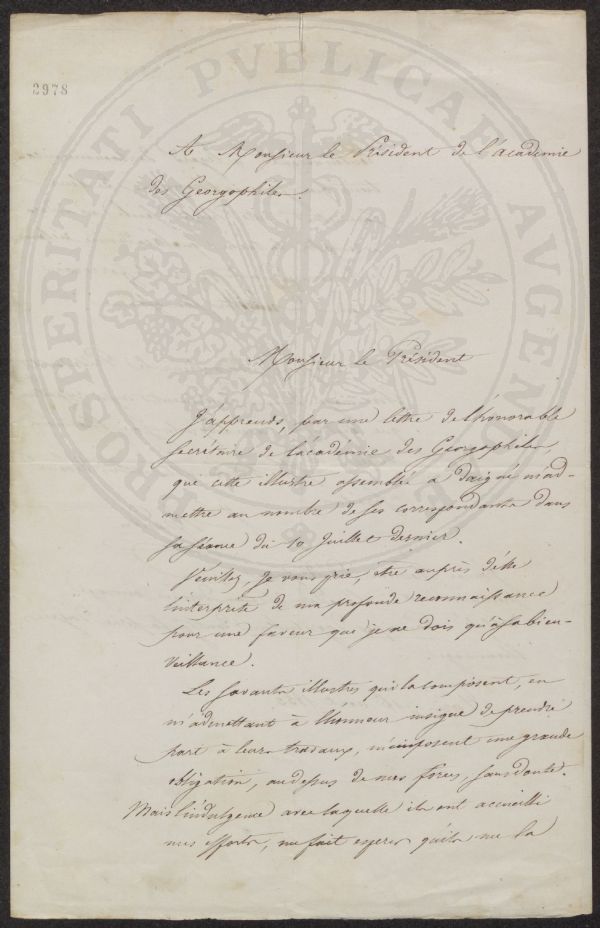 2978
PROSPERITATI PVBLICAE AVGENDAE
A Monsieur le Président de l'académie
des Georgophiles.
Monsieur le Président
J'apprends, par une lettre de l'honorable
secrétaire de l'académie des Georgophiles,
que cette illustre assemblée a daigné m'ad-
mettre au nombre de ses correspondants dans
sa séance du 10 Juillet dernier.
Veuillez, je vous prie, être auprès d'elle
l'interprète de ma profonde reconnaissance
pour une faveur que je ne dois qu'à sa bien-
veillance.
Les savants illustres qui la composent, en
m'admettant à l'honneur insigne de prendre
part à leurs travaux, m'imposent une grande
obligation, au dessus de mes forces, sans doute.
Mais l'indulgence avec laquelle ils ont accueilli
mes efforts, me fait espérer qu'ils me la